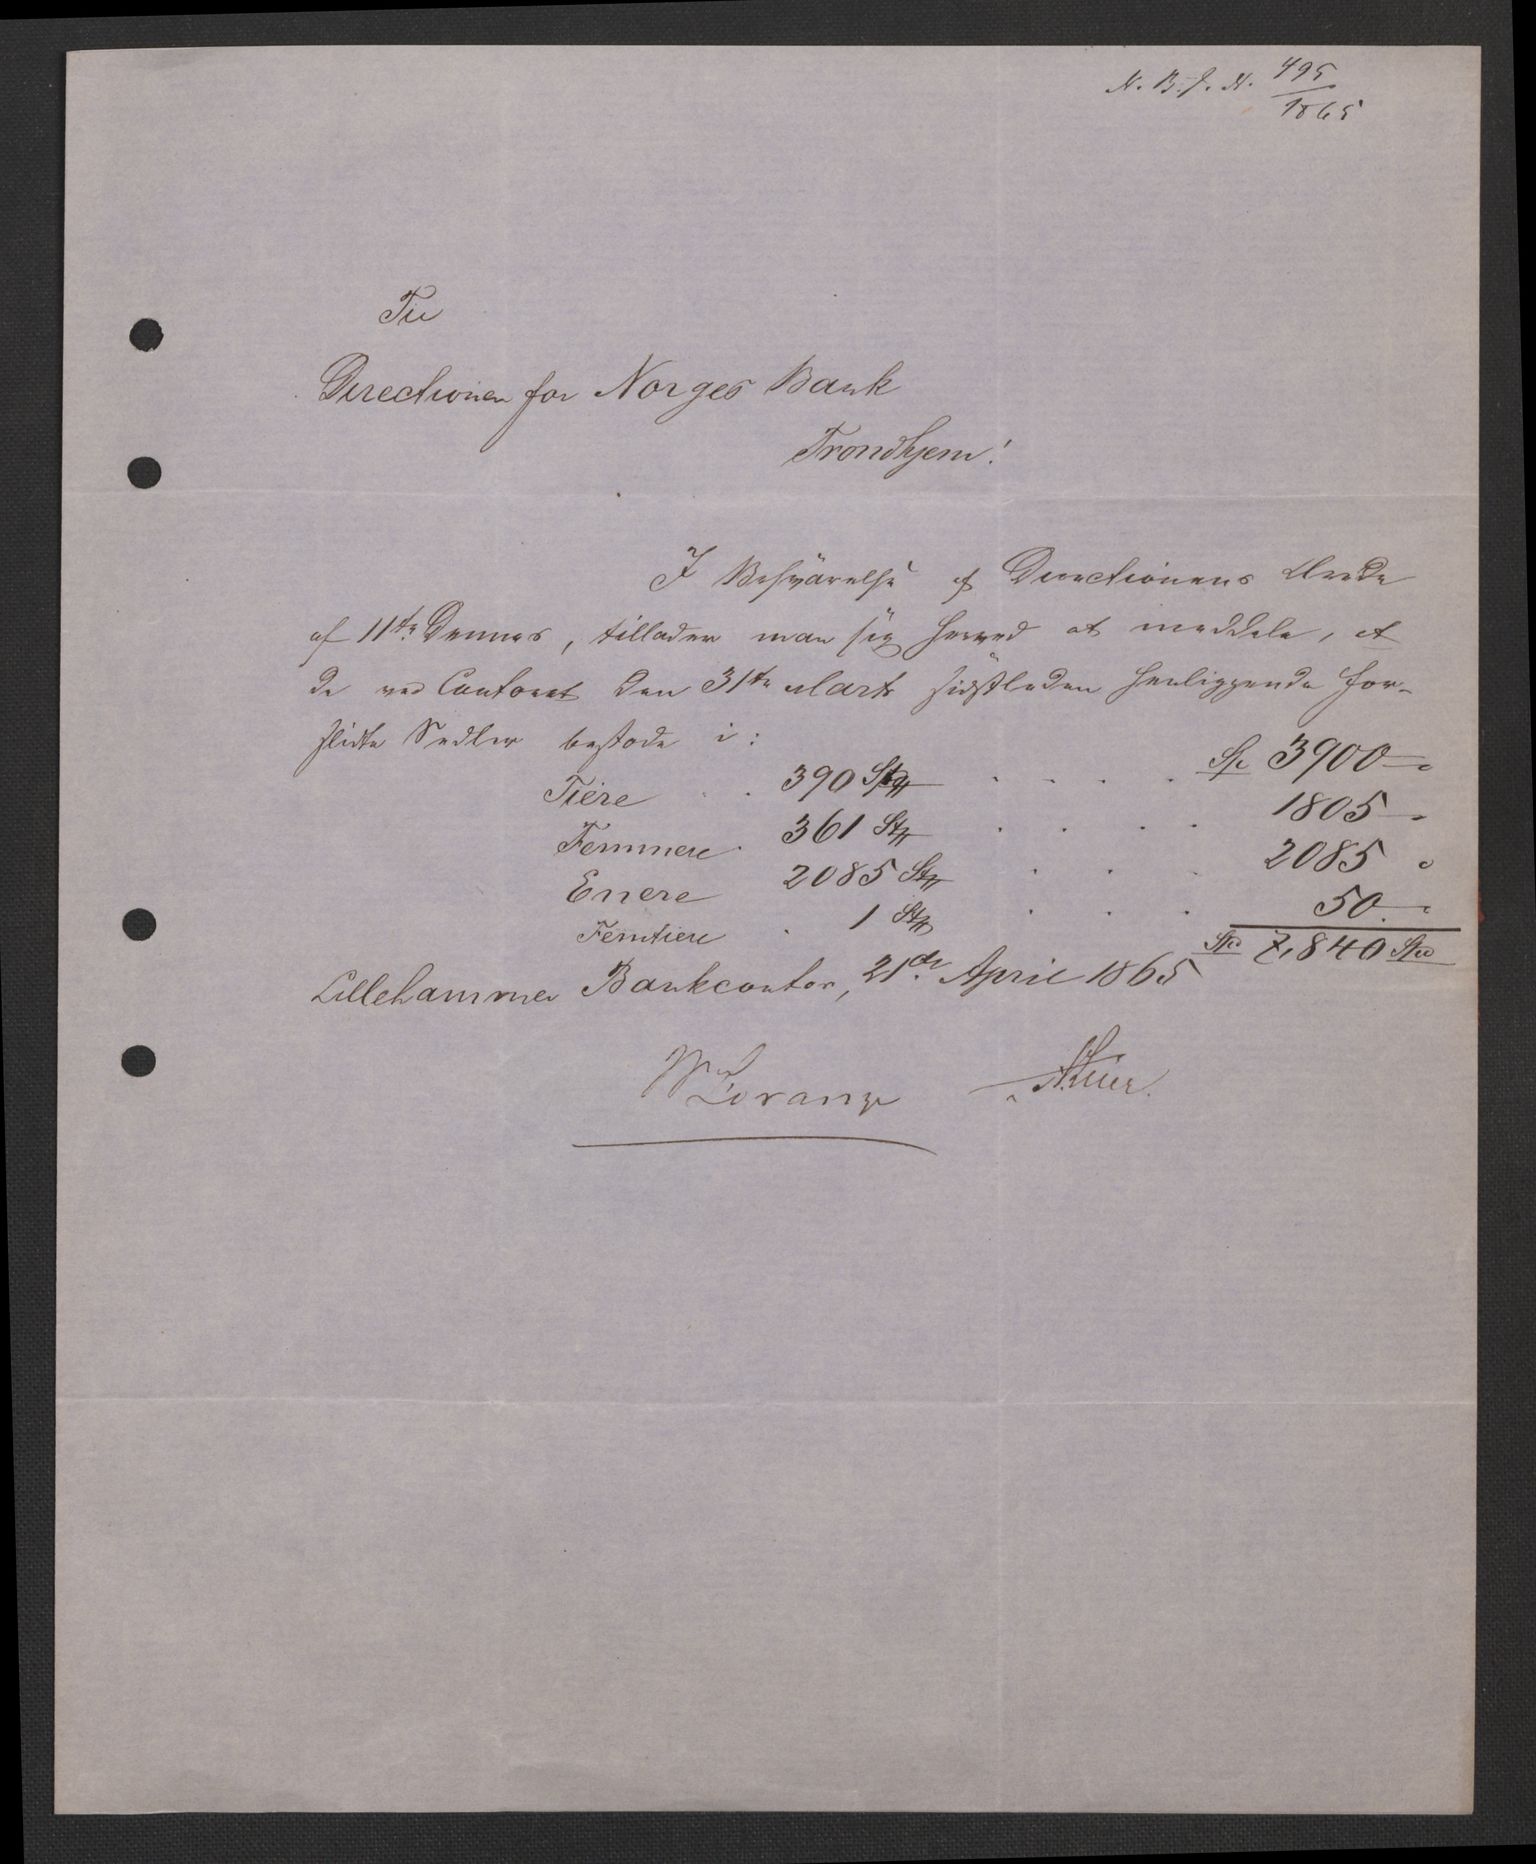 N. B. J. N. 495
1865
Til
Directionen for Norges Bank
Trondhjem!
I Besvarelse af Directionens Ærede
af 11te Dennes, tillader man sig herved at meddele, at
de ved Contoret den 31te Marts sidstleden henliggende for-
slidte Sedler bestode i:
Tiere . . 390 Stk . . . . Spd 3900 "
Femmere . 361 Stk . . . . 1805 "
Enere 2085 Stk . . . 2085 "
Femtiere . 1 Stk . . . 50 "
Spd 7,840 Spd
Lillehammer Bankcontor, 21de April 1865